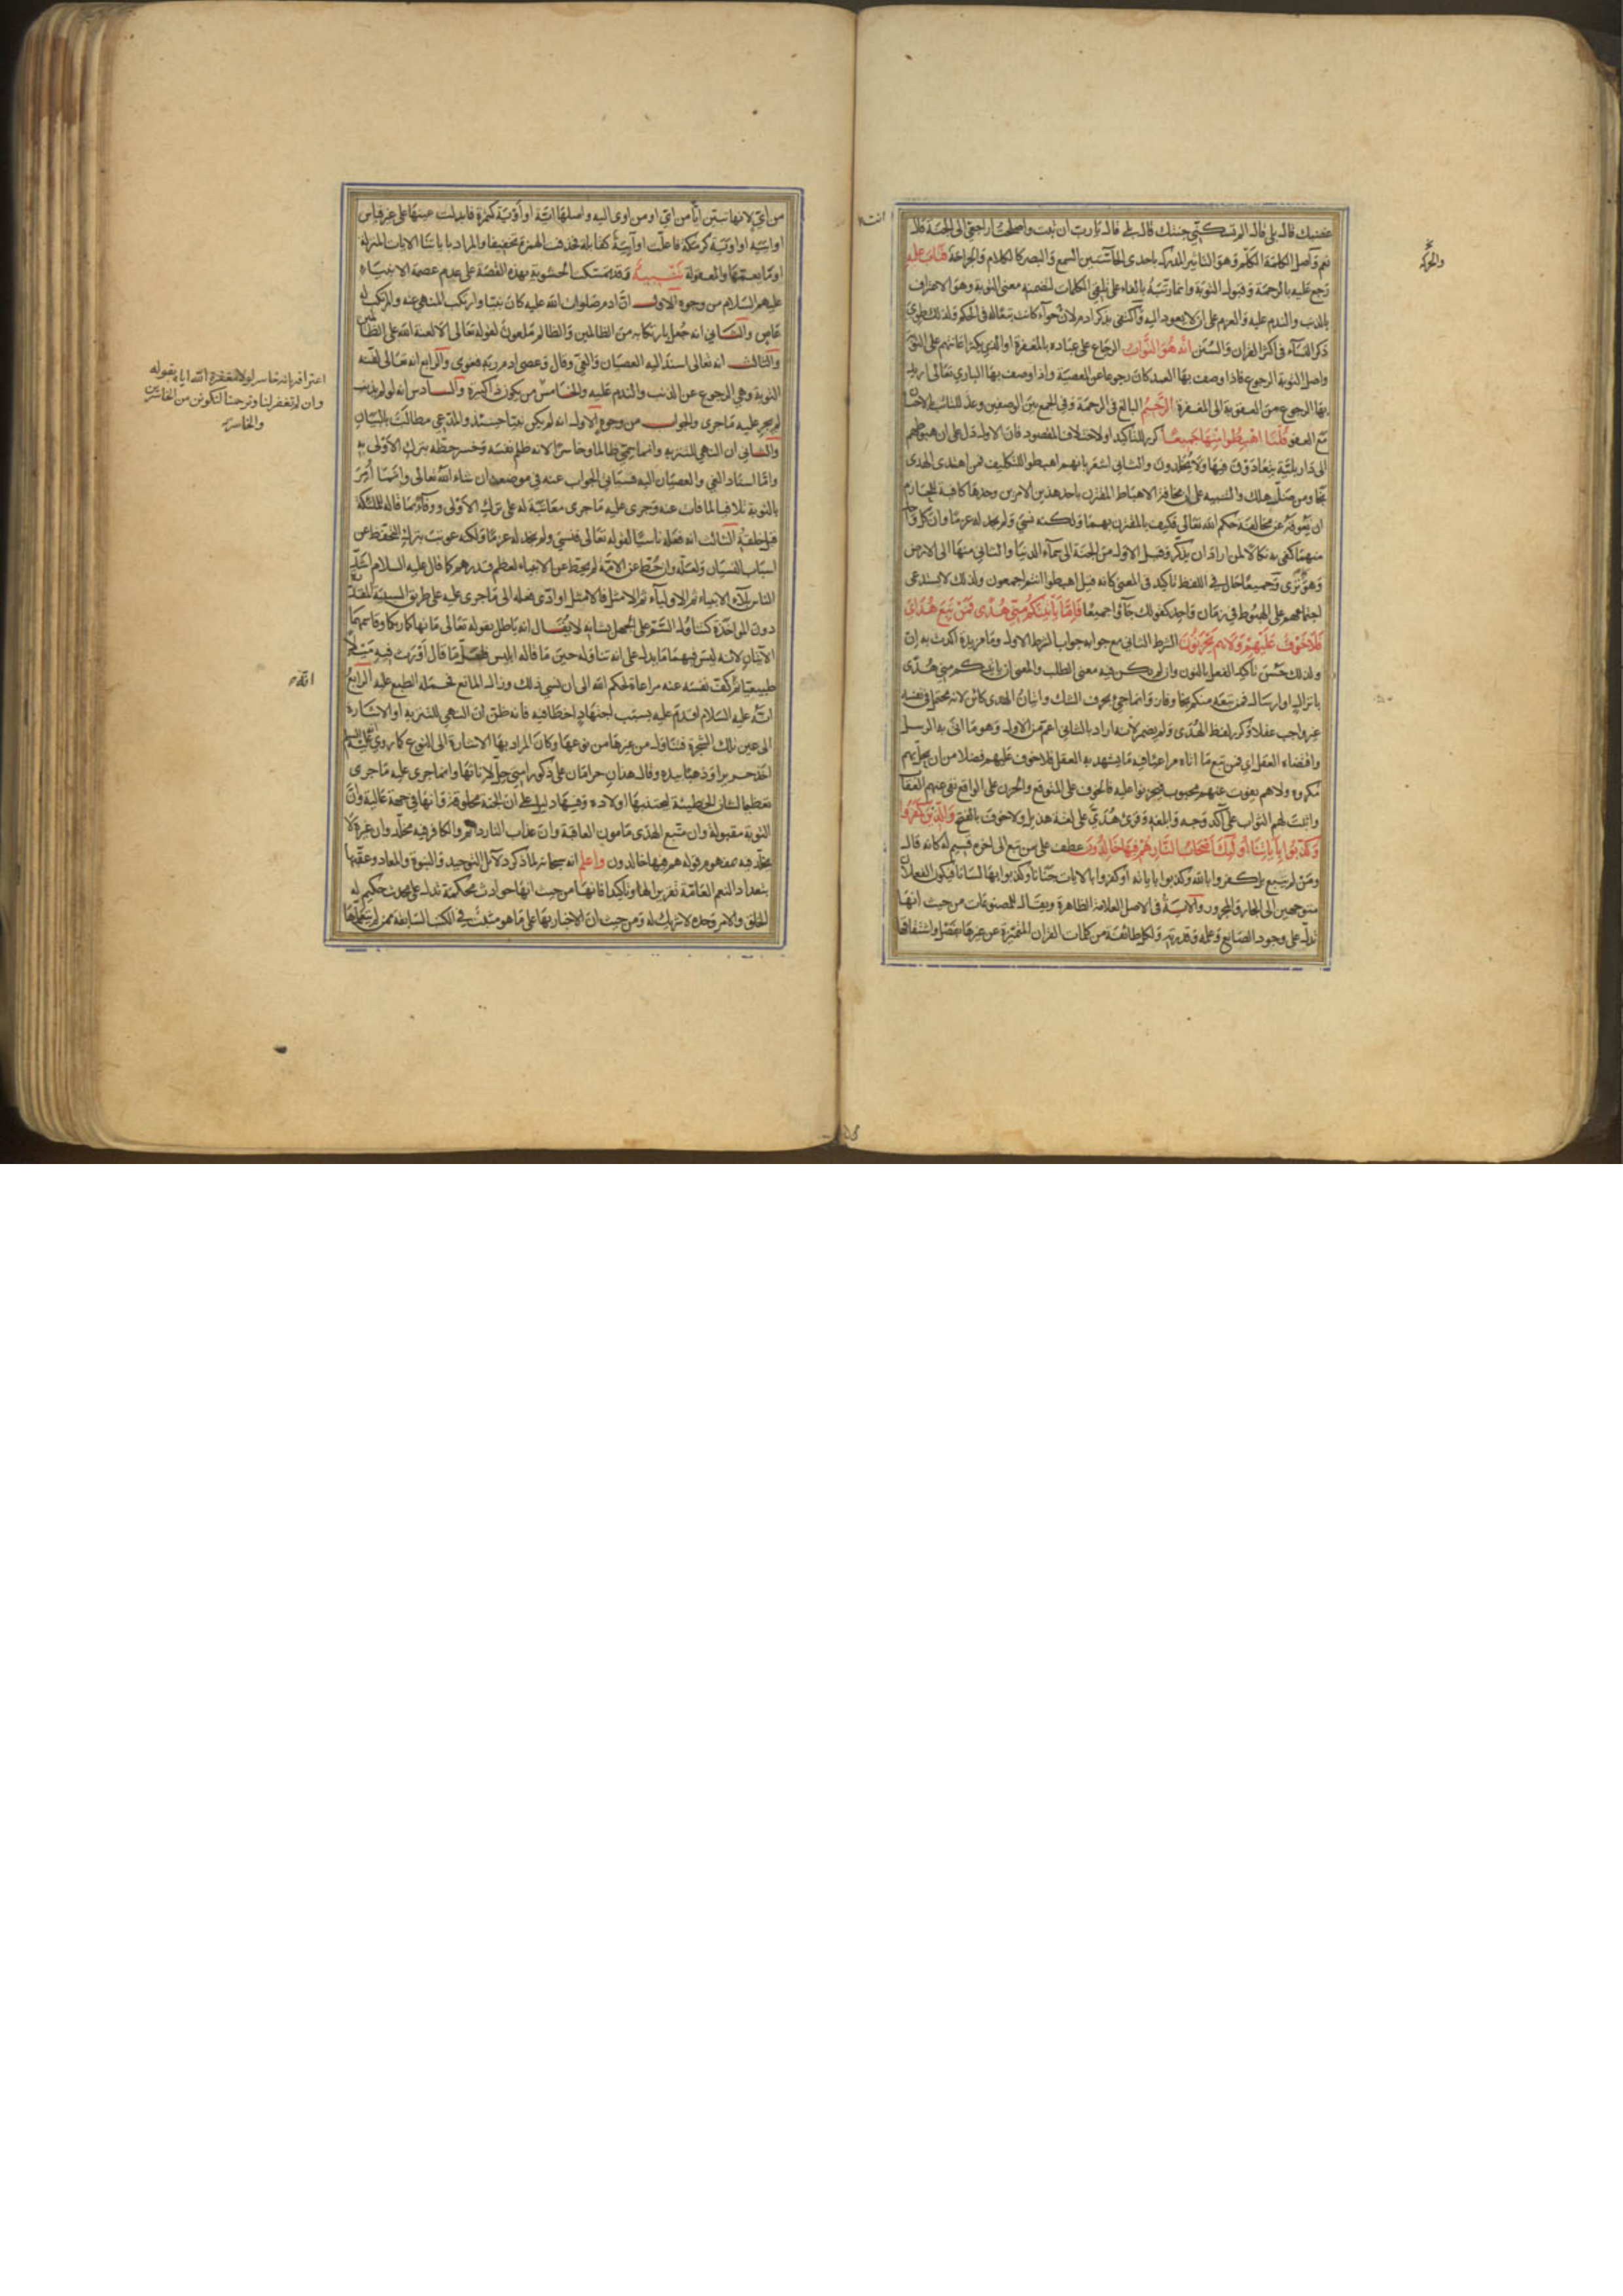 غضبك قال بلى قال الم تسكنّي جنتك قال بلى قال يا رب ان تبت واصلحت اراجعي الى الجنة قال
نعم واصل الكلمة الكلم وهو التاثير المدرك باحدى الحاستين السمع والبصر كالكلام والجراحة فتاب عليه
رجع عليه بالرحمة وقبول التوبة وانما رتبه بالفاء على تلقي الكلمات لتضمنه معنى التوبة وهو الاعتراف
بالذنب والندم عليه والعزم على ان لا يعود اليه واكتفى بذكر ادم لان حواء كانت تبعا له في الحكم ولذلك طوي
ذكر النساء في اكثر القران والسنن انه هو التواب الرجاع على عباده بالمغفرة او الذي يكثر اعانتهم على التوبة
واصل التوبة الرجوع فاذا وصف بها العبد كان رجوعا عن المعصية واذا وصف بها الباري تعالى اريد
بها الرجوع من العقوبة الى المغفرة الرحيم البالغ في الرحمة وفي الجمع بين الوصفين وعد للتائب بالاحسان
مع العفو قلنا اهبطوا منها جميعا كرر للتاكيد او لاختلاف المقصود فان الاول دل على ان هبوطهم
الى دار بلية يتعادون فيها ولا يخلدون والثاني اشعر بانهم اهبطوا للتكليف فمن اهتدى الهدى
نجا ومن ضله هلك والتنبيه على ان مخافة الاهباط المقترن باحد هذين الامرين وحدها كافية للحازم
ان تعوقه عن مخالفة حكم الله تعالى فكيف بالمقترن بهما ولكنه نسي ولم نجد له عزما وان كل واحد
منهما كفى به نكالا لمن اراد ان يذكر وقيل الاول من الجنة الى سماء الدنيا والثاني منها الى الارض
وهو كما ترى وجميعا حال في اللفظ تاكيد في المعنى كانه قيل اهبطوا انتم اجمعون ولذلك لا يستدعي
اجتماعهم على الهبوط في زمان واحد كقولك جاؤا جميعا فاما ياتينكم مني هدى فمن تبع هداي
فلا خوف عليهم ولا هم يحزنون الشرط الثاني مع جوابه جواب الشرط الاول وما مزيدة اكدت به ان
ولذلك حسن تاكيد الفعل بالنون وان لم يكن فيه معنى الطلب والمعنى ان ياتينكم مني هدى
بانزال او ارسال فمن تبعه منكم نجا وفاز وانما جئ بحرف الشك واتيان الهدى كائن لانه محتمل في نفسه
غير واجب عقلا وكرر لفظ الهدى ولم يضمر لانه اراد بالثاني اعم من الاول وهو ما اتى به الرسل
واقتضاه العقل اي فمن تبع ما اتاه مراعيا فيه ما يشهد به العقل فلا خوف عليهم فضلا من ان يحل بهم
مكروه ولا هم يفوت عنهم محبوب فيحزنوا عليه فالخوف على المتوقع والحزن على الواقع نفى عنهم العقاب
واثبت لهم الثواب على آكد وجه وابلغه وقرئ هديّ على لغة هذيل ولا خوف بالفتح والذين كفروا
وكذبوا باياتنا اولئك اصحاب النار هم فيها خالدون عطف على من تبع الى اخره قسيم له كانه قال
ومن لم يتبع بل كفروا بالله وكذبوا باياته او كفروا بالايات جنانا وكذبوا بها لسانا فيكون الفعلان
متوجهين الى الجار والمجرور والاية في الاصل العلامة الظاهرة ويقال للمصنوعات من حيث انها
تدل على وجود الصانع وعلمه وقدرته ولكل طائفة من كلمات القران المتميزة عن غيرها بفصل واشتقاقها
والحركة
من ايّ لانها تبين ايّا من ايّ او من اوى اليه واصلها اية او اوية كتمرة فابدلت عينها على غير قياس
او ايية او اوية كرمكة فاعلت او ائية كقائلة فحذفت الهمزة تخفيفا والمراد باياتنا الايات المنزلة
او ما يعمها والمعقولة تنبيه وقد تمسكت الحشوية بهذه القصة على عدم عصمة الانبياء
عليهم السلام من وجوه الاول ان ادم صلوات الله عليه كان نبيا وارتكب المنهي عنه والمرتكب له
عاص والثاني انه جعل بارتكابه من الظالمين والظالم ملعون لقوله تعالى الا لعنة الله على الظالمين
والثالث انه تعالى اسند اليه العصيان والغي وقال وعصى ادم ربه فغوى والرابع انه تعالى لقنه
التوبة وهي الرجوع عن الذنب والندم عليه والخامس من يكون ذا كبيرة والسادس انه لو لم يذنب
لم يجر عليه ما جرى والجواب من وجوه الاول انه لم يكن نبيا حينئذ والمدعي مطالب بالبيان
والثاني ان النهي للتنزيه وانما سمي ظالما وخاسرا لانه ظلم نفسه وخسر حظه بترك الاولى به
واما اسناد الغي والعصيان اليه فسياتي الجواب عنه في موضعه ان شاء الله تعالى وانما امر
بالتوبة تلافيا لما فات عنه وجرى عليه ما جرى معاتبة له على ترك الاولى ووفاء بما قاله للملائكة
قبل خلقه الثالث انه فعله ناسيا لقوله تعالى فنسي ولم نجد له عزما ولكنه عوتب بترك التحفظ عن
اسباب النسيان ولعله وان حط عن الامة لم يحط عن الانبياء لعظم قدرهم كما قال عليه السلام اشد
الناس بلاء الانبياء ثم الاولياء ثم الامثل فالامثل او ادى فعله الى ما جرى عليه على طريق السببية المقدرة
دون المؤاخذة كتناول السم على الجهل بشانه لا يقال انه باطل بقوله تعالى ما نهاكما ربكما وقاسمهما
الايتان لانه ليس فيهما ما يدل على انه تناوله حين ما قاله ابليس فلعل مقاله اورث فيه ميلا
طبيعيا ثم كف نفسه عنه مراعاة لحكم الله الى ان نسي ذلك وزال المانع فحمله الطبع عليه الرابع
انه عليه السلام اقدم عليه بسبب اجتهاد اخطا فيه فانه ظن ان النهي للتنزيه او الاشارة
الى عين تلك الشجرة فتناول من غيرها من نوعها وكان المراد بها الاشارة الى النوع كما روي انه عليه السلام
اخذ حريرا وذهبا بيده وقال هذان حرامان على ذكور امتي حل لاناثها وانما جرى عليه ما جرى
تعظيما لشان الخطيئة ليجتنبها اولاده وفيها دليل على ان الجنة مخلوقة وانها في جهة عالية وان
التوبة مقبولة وان متبع الهدى مامون العاقبة وان عذاب النار دائم والكافر فيه مخلد وان غيره لا
يخلد فيه بمفهوم قوله هم فيها خالدون واعلم انه سبحانه لما ذكر دلائل التوحيد والنبوة والمعاد وعقبها
بتعداد النعم العامة تقريرا لها وتاكيدا فانها من حيث انها حوادث محكمة تدل على محدث حكيم له
الخلق والامر وحده لا شريك له ومن حيث ان الاخبار بها على ما هو مثبت في الكتب السابقة ممن لم يتعلمها
اعترافه بانه خاسر لولا مغفرة الله اياه بقوله
وان لم تغفر لنا وترحمنا لنكونن من الخاسرين
والخاسر